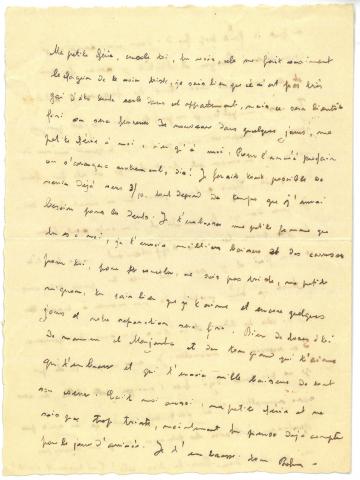 Ma petite chérie, console toi, tu vois, cela me fait vraiment
le chagrin de te voir triste, je sais bien que ce n'est pas très
gai d'être toute seule dans cet appartement, mais ce sera bientôt
fini on sera heureux de nouveau dans quelques jours, ma
petite chérie à moi, rien qu'à moi. Pour l'année prochaine
on s'arrangera autrement, dis! Je ferai tout possible de
venir déjà vers, tout dépend du temps que j'aurai
besoin pour les dents. Je t'embrasse ma petite femme que
tu es à moi, je t'envoie milliers baisers et des caresses
pour toi, pour te consoler, ne sois pas triste, ma petite
mignonne, tu sais bien que je t'aime et encore quelques
jours et notre séparation sera finie. Bien de choses d'ici
de maman et et de ton grand qui t'aime
qui t'embrasse et qui t'envoie mille baisers de tout
son coeur. Écrit moi aussi, ma petite chérie et ne
sois pas trop triste, maintenant tu peux déjà compter
pour le jour d'arrivée. Je t'embrasse ton